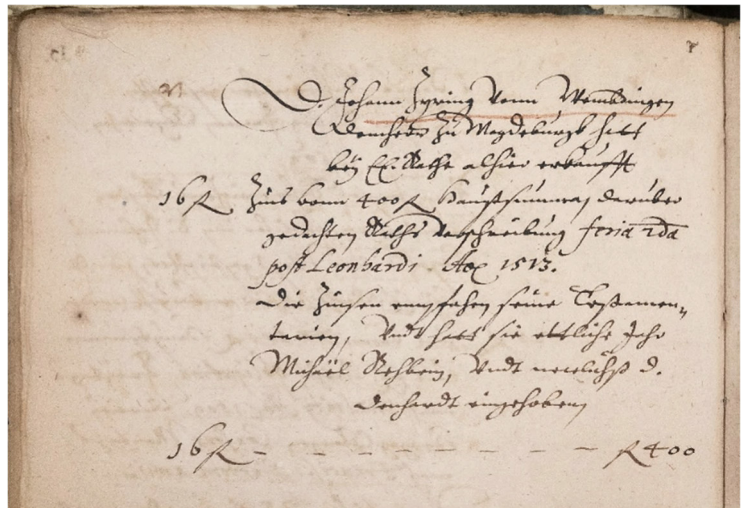 D. Johann Zyring vonn Wembdingen
Domherr zu Magdeburgk hatt
bey E. Rathe alhier erkaufft
16 fl. Zins vonn 400 fl. Hauptsumma, darüber
gedachten Raths Verschreibung feria 2da
post Leonhardi. Ao 1513.
Die Zinsen empfahen seine Testamen„
tarien, Undt hatt sie ettliche Jahr
Michäel Rehbein, Undt newlichst d.
Denhardt eingehoben,
16 fl. – – – – – – – fl 400